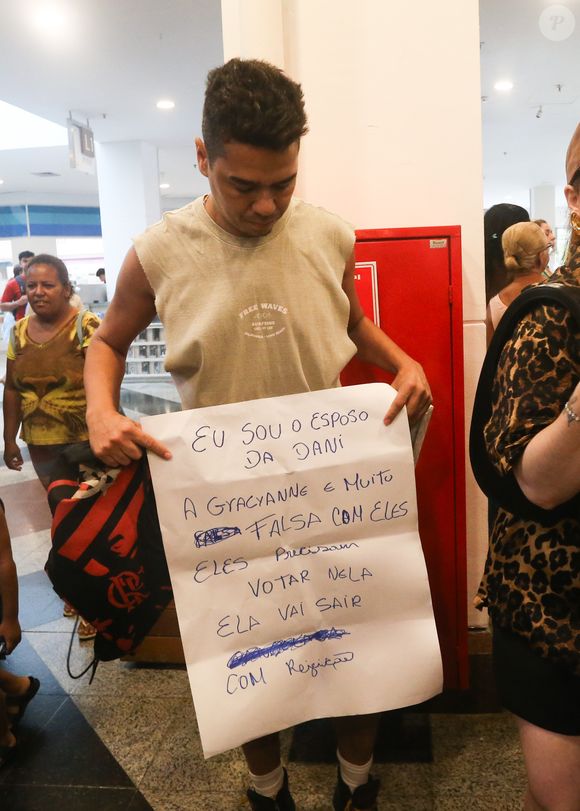 EU SOU O ESPOSO
DA DANI
A GRACYANNE E MUITO
FALSA COM ELES
ELES PRECISAM
VOTAR NELA
ELA VAI SAIR
COM REJEIÇÃO
FREE WAVES
SURFING
P